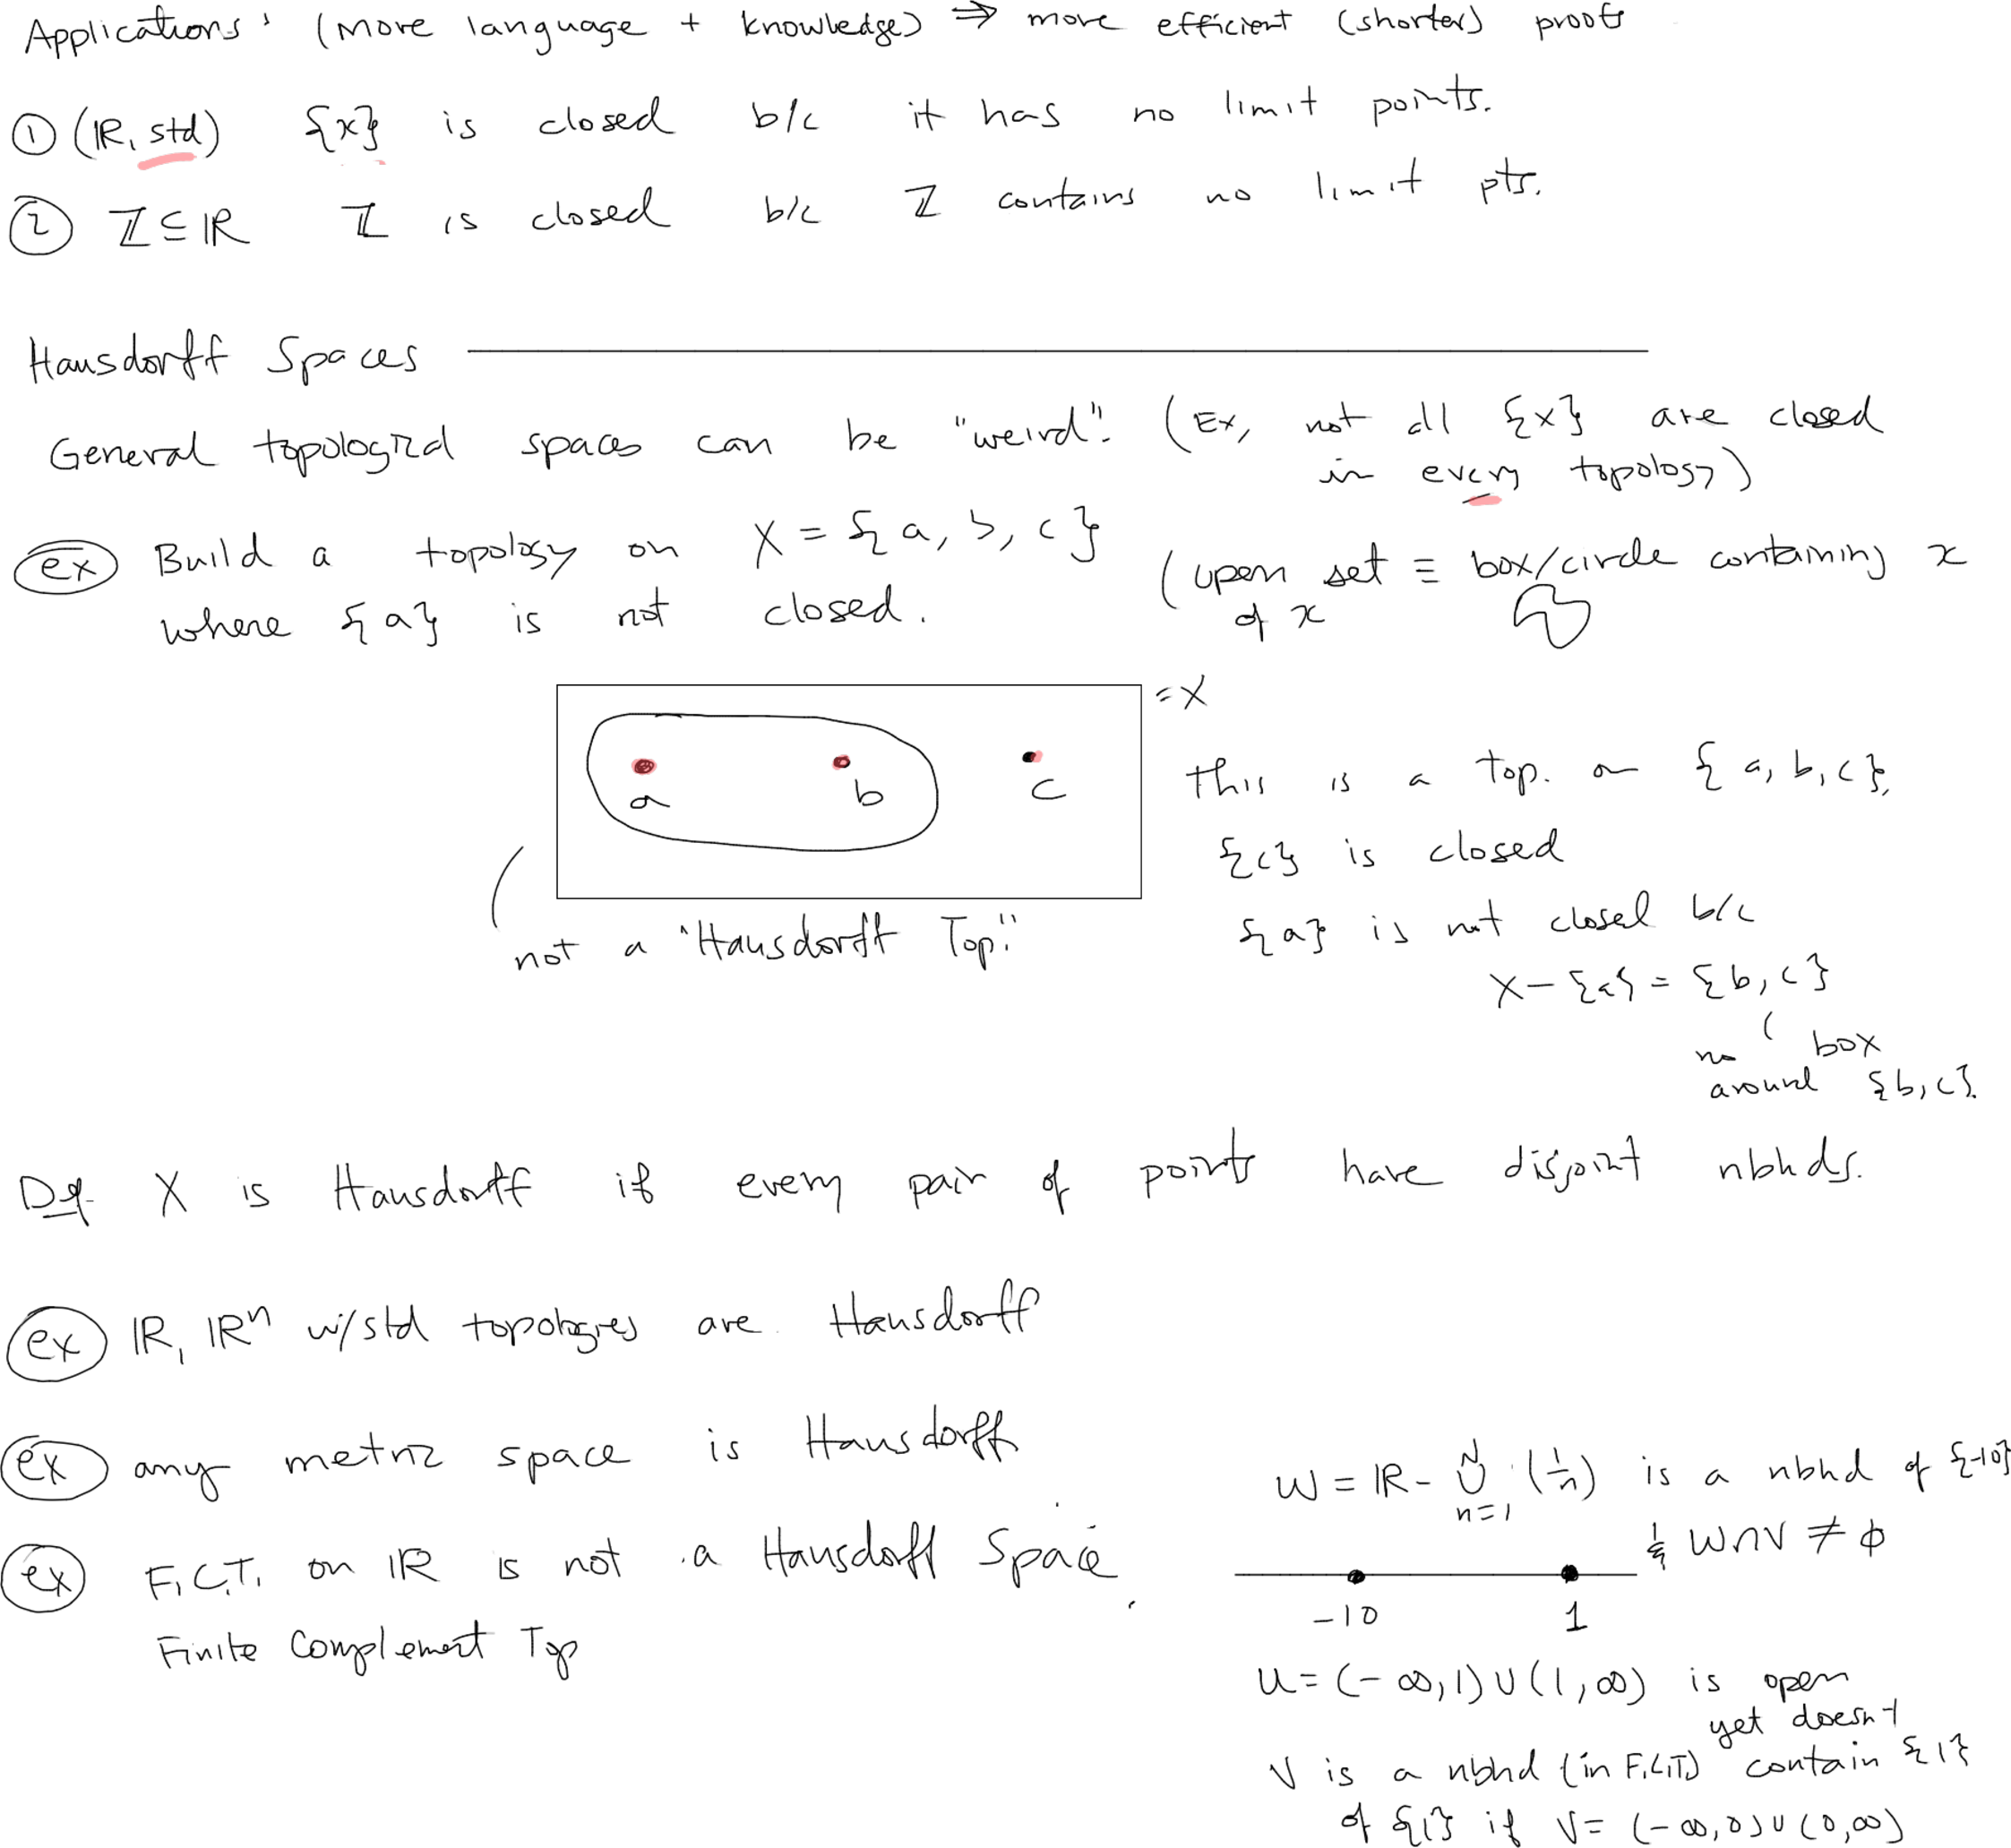 Applications: (More language + knowledge) ⇒ more efficient (shorter) proofs
① (ℝ, std) {x} is closed b/c it has no limit points.
② ℤ ⊆ ℝ ℤ is closed b/c ℤ contains no limit pts.
Hausdorff Spaces
General topological spaces can be "weird". (Ex, not all {x} are closed
in every topology)
ex Build a topology on X = {a, b, c}
where {a} is not closed.
(open set ≡ box/circle containing x
of x
= X
a b c
not a "Hausdorff Top."
this is a top. on {a, b, c},
{c} is closed
{a} is not closed b/c
X - {a} = {b, c}
no box
around {b, c}.
Def X is Hausdorff if every pair of points have disjoint nbhds.
ex ℝ, ℝⁿ w/std topologies are Hausdorff
ex any metric space is Hausdorff
ex F.C.T. on ℝ is not a Hausdorff Space.
Finite Complement Top
W = ℝ - ⋃_{n=1}^{N} (1/n) is a nbhd of {-10}
& W∩V ≠ ϕ
-10 1
U = (-∞, 1) ∪ (1, ∞) is open
yet doesn't
contain {1}
V is a nbhd (in F.C.T.)
of {1} if V = (-∞, 0) ∪ (0, ∞)